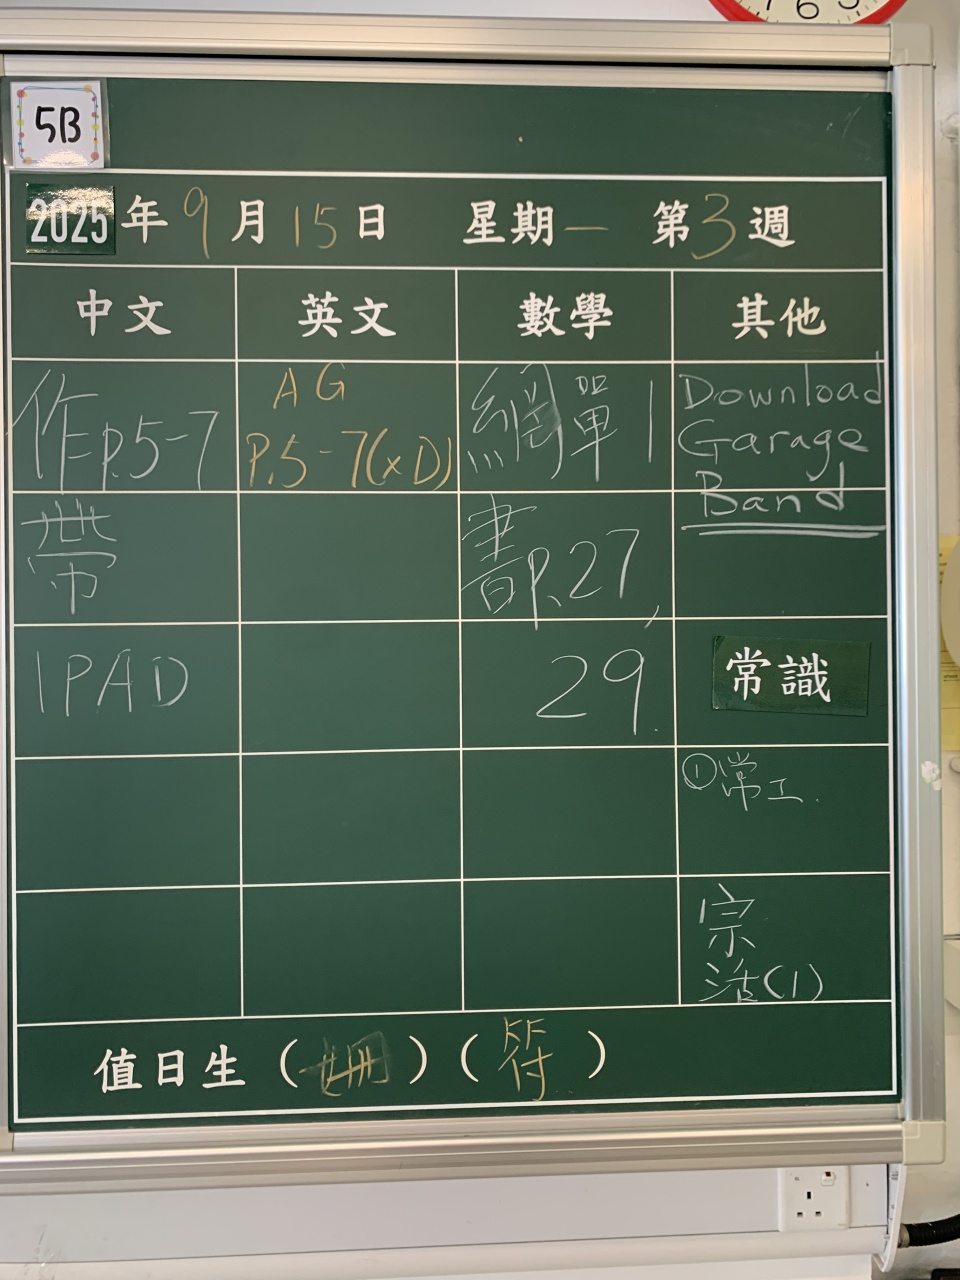 5B
2025年9月15日 星期一 第3週
中文 英文 數學 其他
作P.5-7
帶
IPAD
AG
P.5-7(xD)
網單1
書P.27,
29.
Download
Garage
Band
常識
①常工.
宗
活(1)
值日生( )(符)